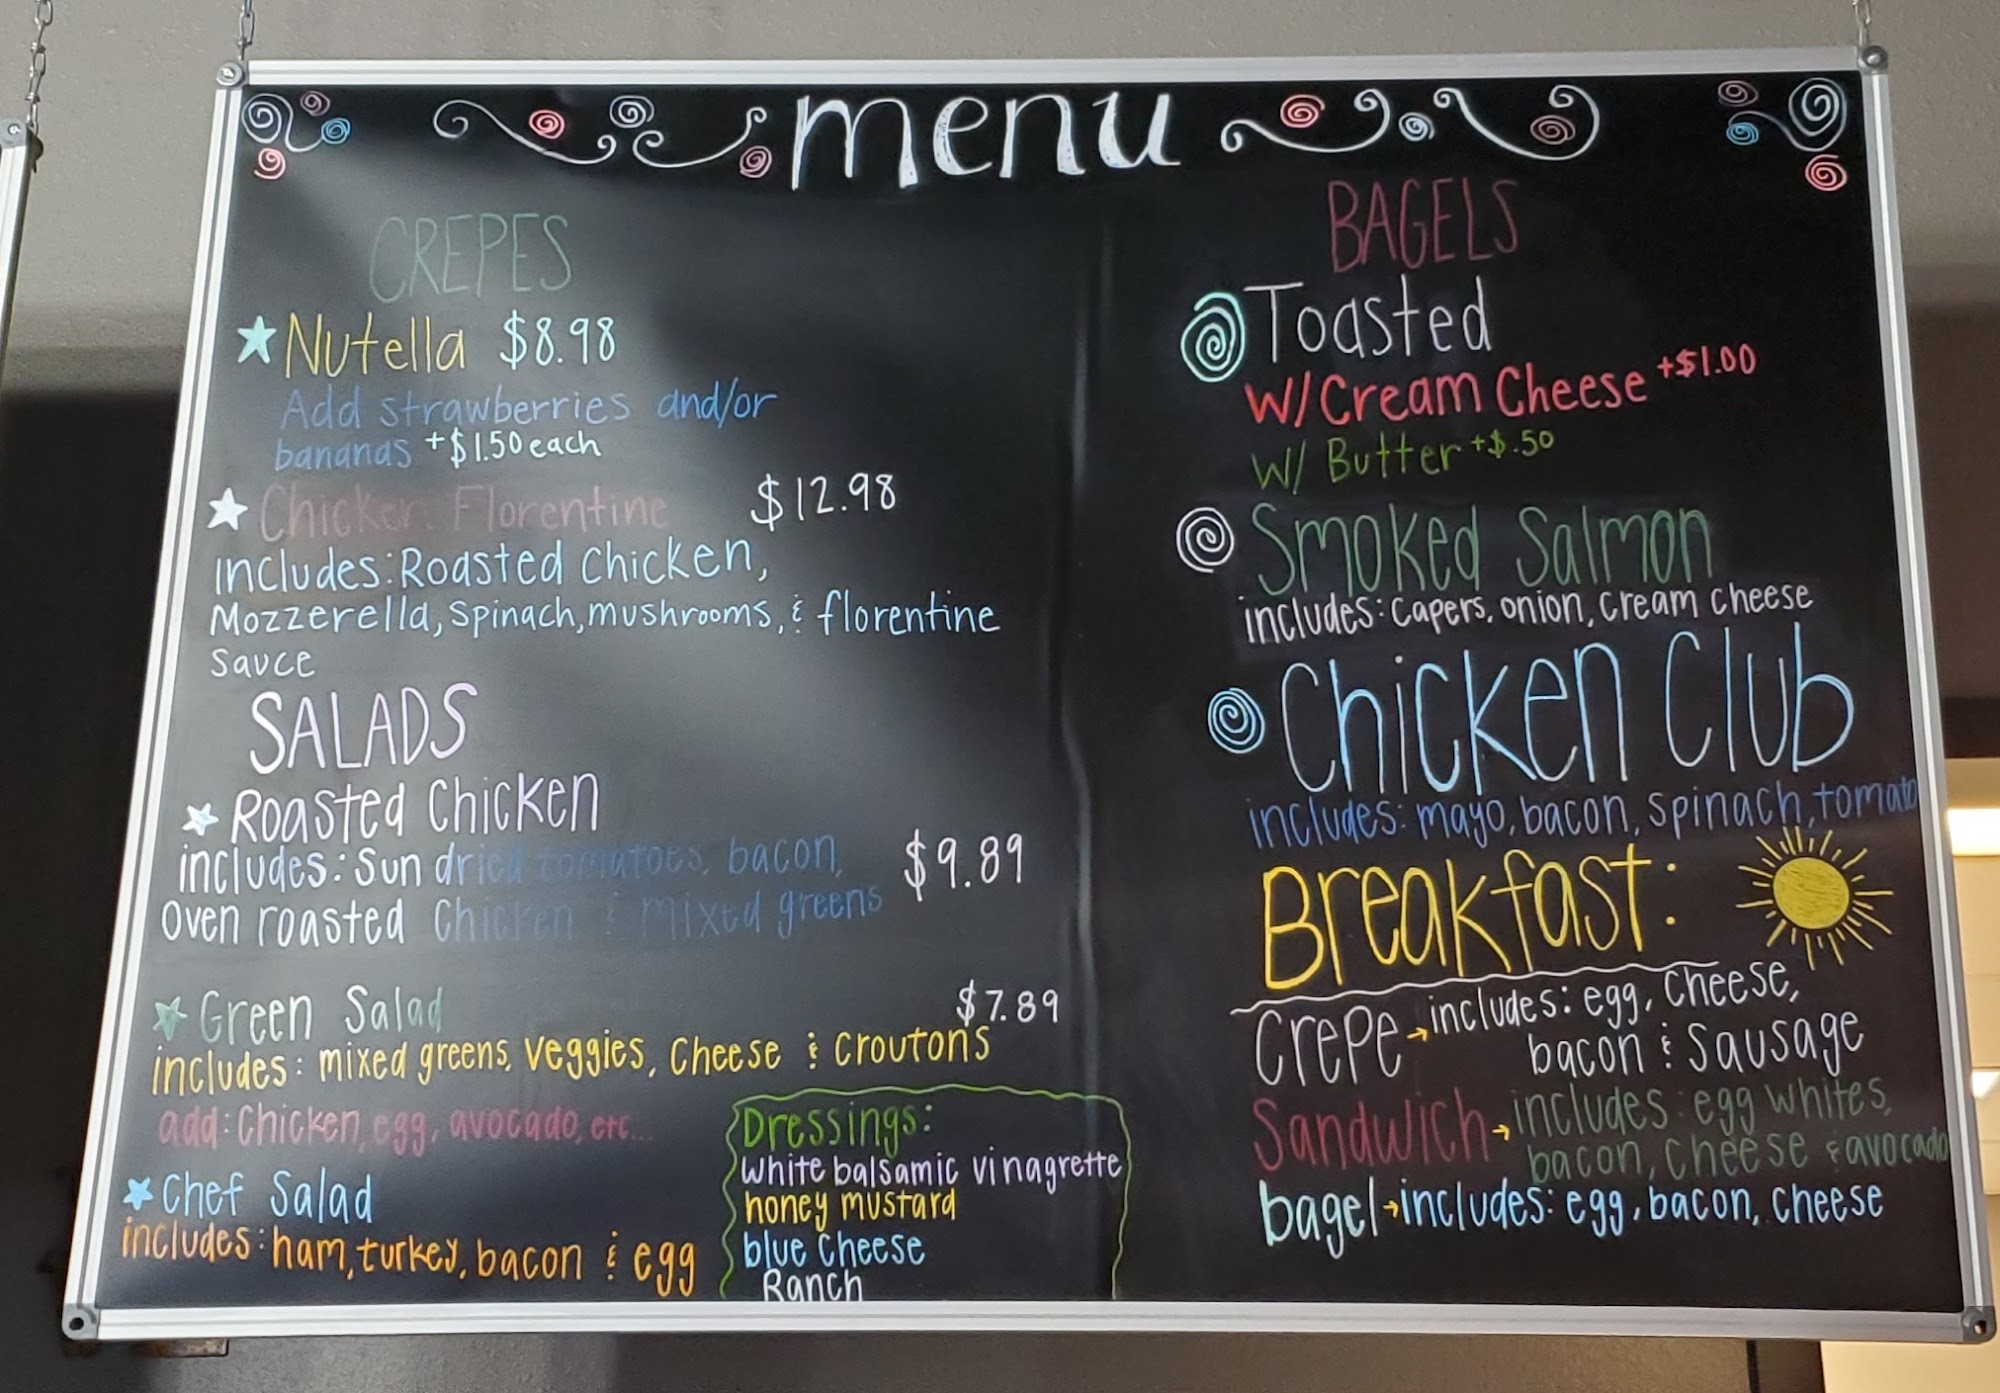 menu
CREPES
Nutella $8.98
Add strawberries and/or
bananas +$1.50 each
Chicken Florentine $12.98
includes: Roasted Chicken,
Mozzerella, spinach, mushrooms, & florentine
sauce
SALADS
Roasted Chicken
includes: Sun dried tomatoes, bacon, $9.89
oven roasted Chicken & mixed greens
Green Salad $7.89
includes: mixed greens, veggies, Cheese & croutons
add: Chicken, egg, avocado, etc...
Chef Salad
includes: ham, turkey, bacon & egg
Dressings:
white balsamic vinagrette
honey mustard
blue cheese
Ranch
BAGELS
Toasted
w/ Cream Cheese +$1.00
w/ Butter +$.50
Smoked Salmon
includes: capers, onion, cream cheese
Chicken Club
includes: mayo, bacon, spinach, tomato
Breakfast:
Crepe → includes: egg, cheese,
bacon & sausage
Sandwich → includes: egg whites,
bacon, cheese & avocado
bagel → includes: egg, bacon, cheese